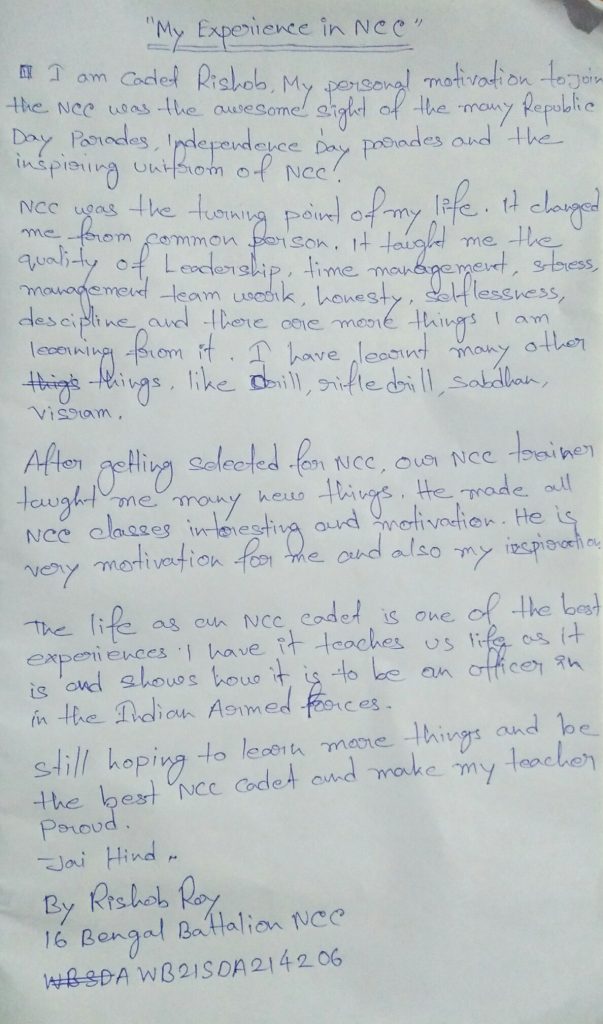 "My Experience in NCC"
I am Cadet Rishob, My personal motivation to join
the NCC was the awesome sight of the many Republic
Day Parades, Independence Day parades and the
inspiring unifrom of NCC!
NCC was the turning point of my life. It changed
me from common person. It taught me the
quality of Leadership, time management, stress,
management team work, honesty, selflessness,
descipline and there are more things I am
learning from it. I have learnt many other
things, like Drill, rifle drill, sabdhan,
Visram.
After getting selected for NCC, our NCC trainer
taught me many new things. He made all
NCC classes interesting and motivation. He is
very motivation for me and also my inspiration
The life as an NCC cadet is one of the best
experiences I have it teaches us life as it
is and shows how it is to be an officer in
in the Indian Armed forces.
still hoping to learn more things and be
the best NCC Cadet and make my teacher
Proud.
Jai Hind
By Rishob Roy
16 Bengal Battalion NCC
WBSDA WB21SDA214206